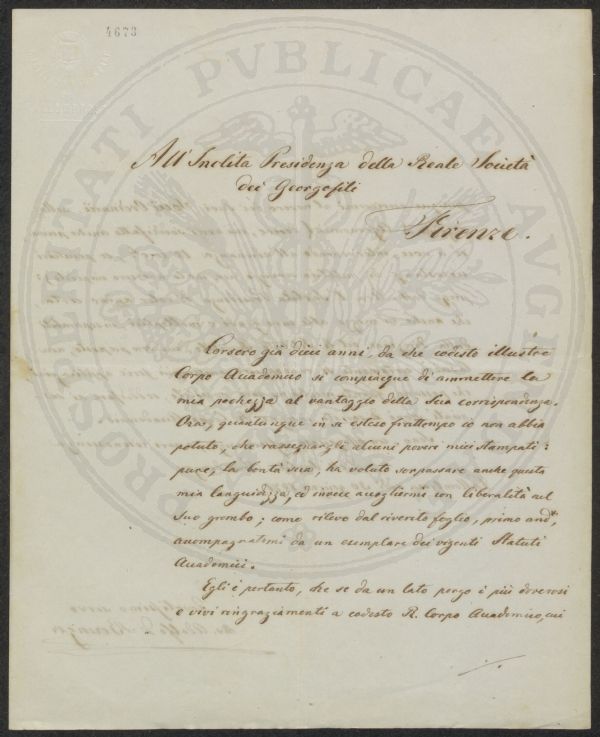 4673
PROSPERITATI PVBLICAE AVGENDAE
All' Inclita Presidenza della Reale Società
dei Georgofili
Firenze.
Corsero già dieci anni, da che codesto illustre
Corpo Accademico si compiacque di ammettere la
mia pochezza al vantaggio della Sua corrispondenza.
Ora, quantunque in sì esteso frattempo io non abbia
potuto, che rassegnargli alcuni poveri miei stampati:
pure, la bontà sua, ha voluto sorpassare anche questa
mia languidezza, ed invece accogliermi con liberalità nel
Suo grembo; come rilevo dal riverito foglio, primo and.e,
accompagnatomi da un esemplare dei vigenti Statuti
Accademici.
Egli è pertanto, che se da un lato porgo i più doverosi
e vivi ringraziamenti a codesto R. Corpo Accademico, cui